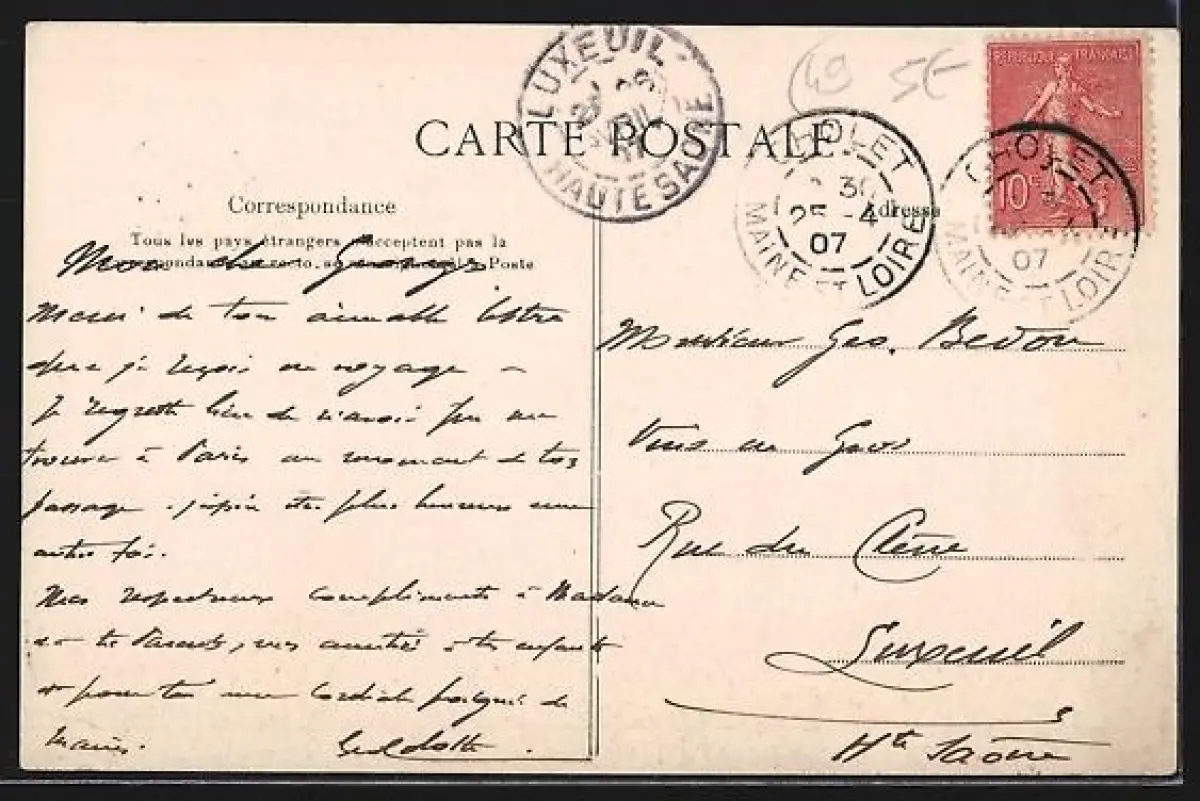 LUXEUIL
HAUTE SAONE
49 5€
REPUBLIQUE FRANÇAISE
10c
CARTE POSTALE
CHOLET
30
25 -4
07
MAINE ET LOIRE
CHOLET
07
MAINE ET LOIRE
Correspondance
Adresse
Tous les pays étrangers n'acceptent pas la
Correspondance au recto. Poste
Mon cher
Merci de ton aimable lettre
que je reçois en voyage
Je regrette bien de n'avoir pu me
trouver à Paris au moment de ton
passage. j'espère être plus heureux une
autre fois.
Mes respectueux compliments à Madame
et tes Parents, mes amitiés à tes enfants
et pour toi une cordiale poignée de
mains.
Monsieur Geo. Bedon
Vins en Gros
Rue du Chêne
Luxeuil
Hte Saône